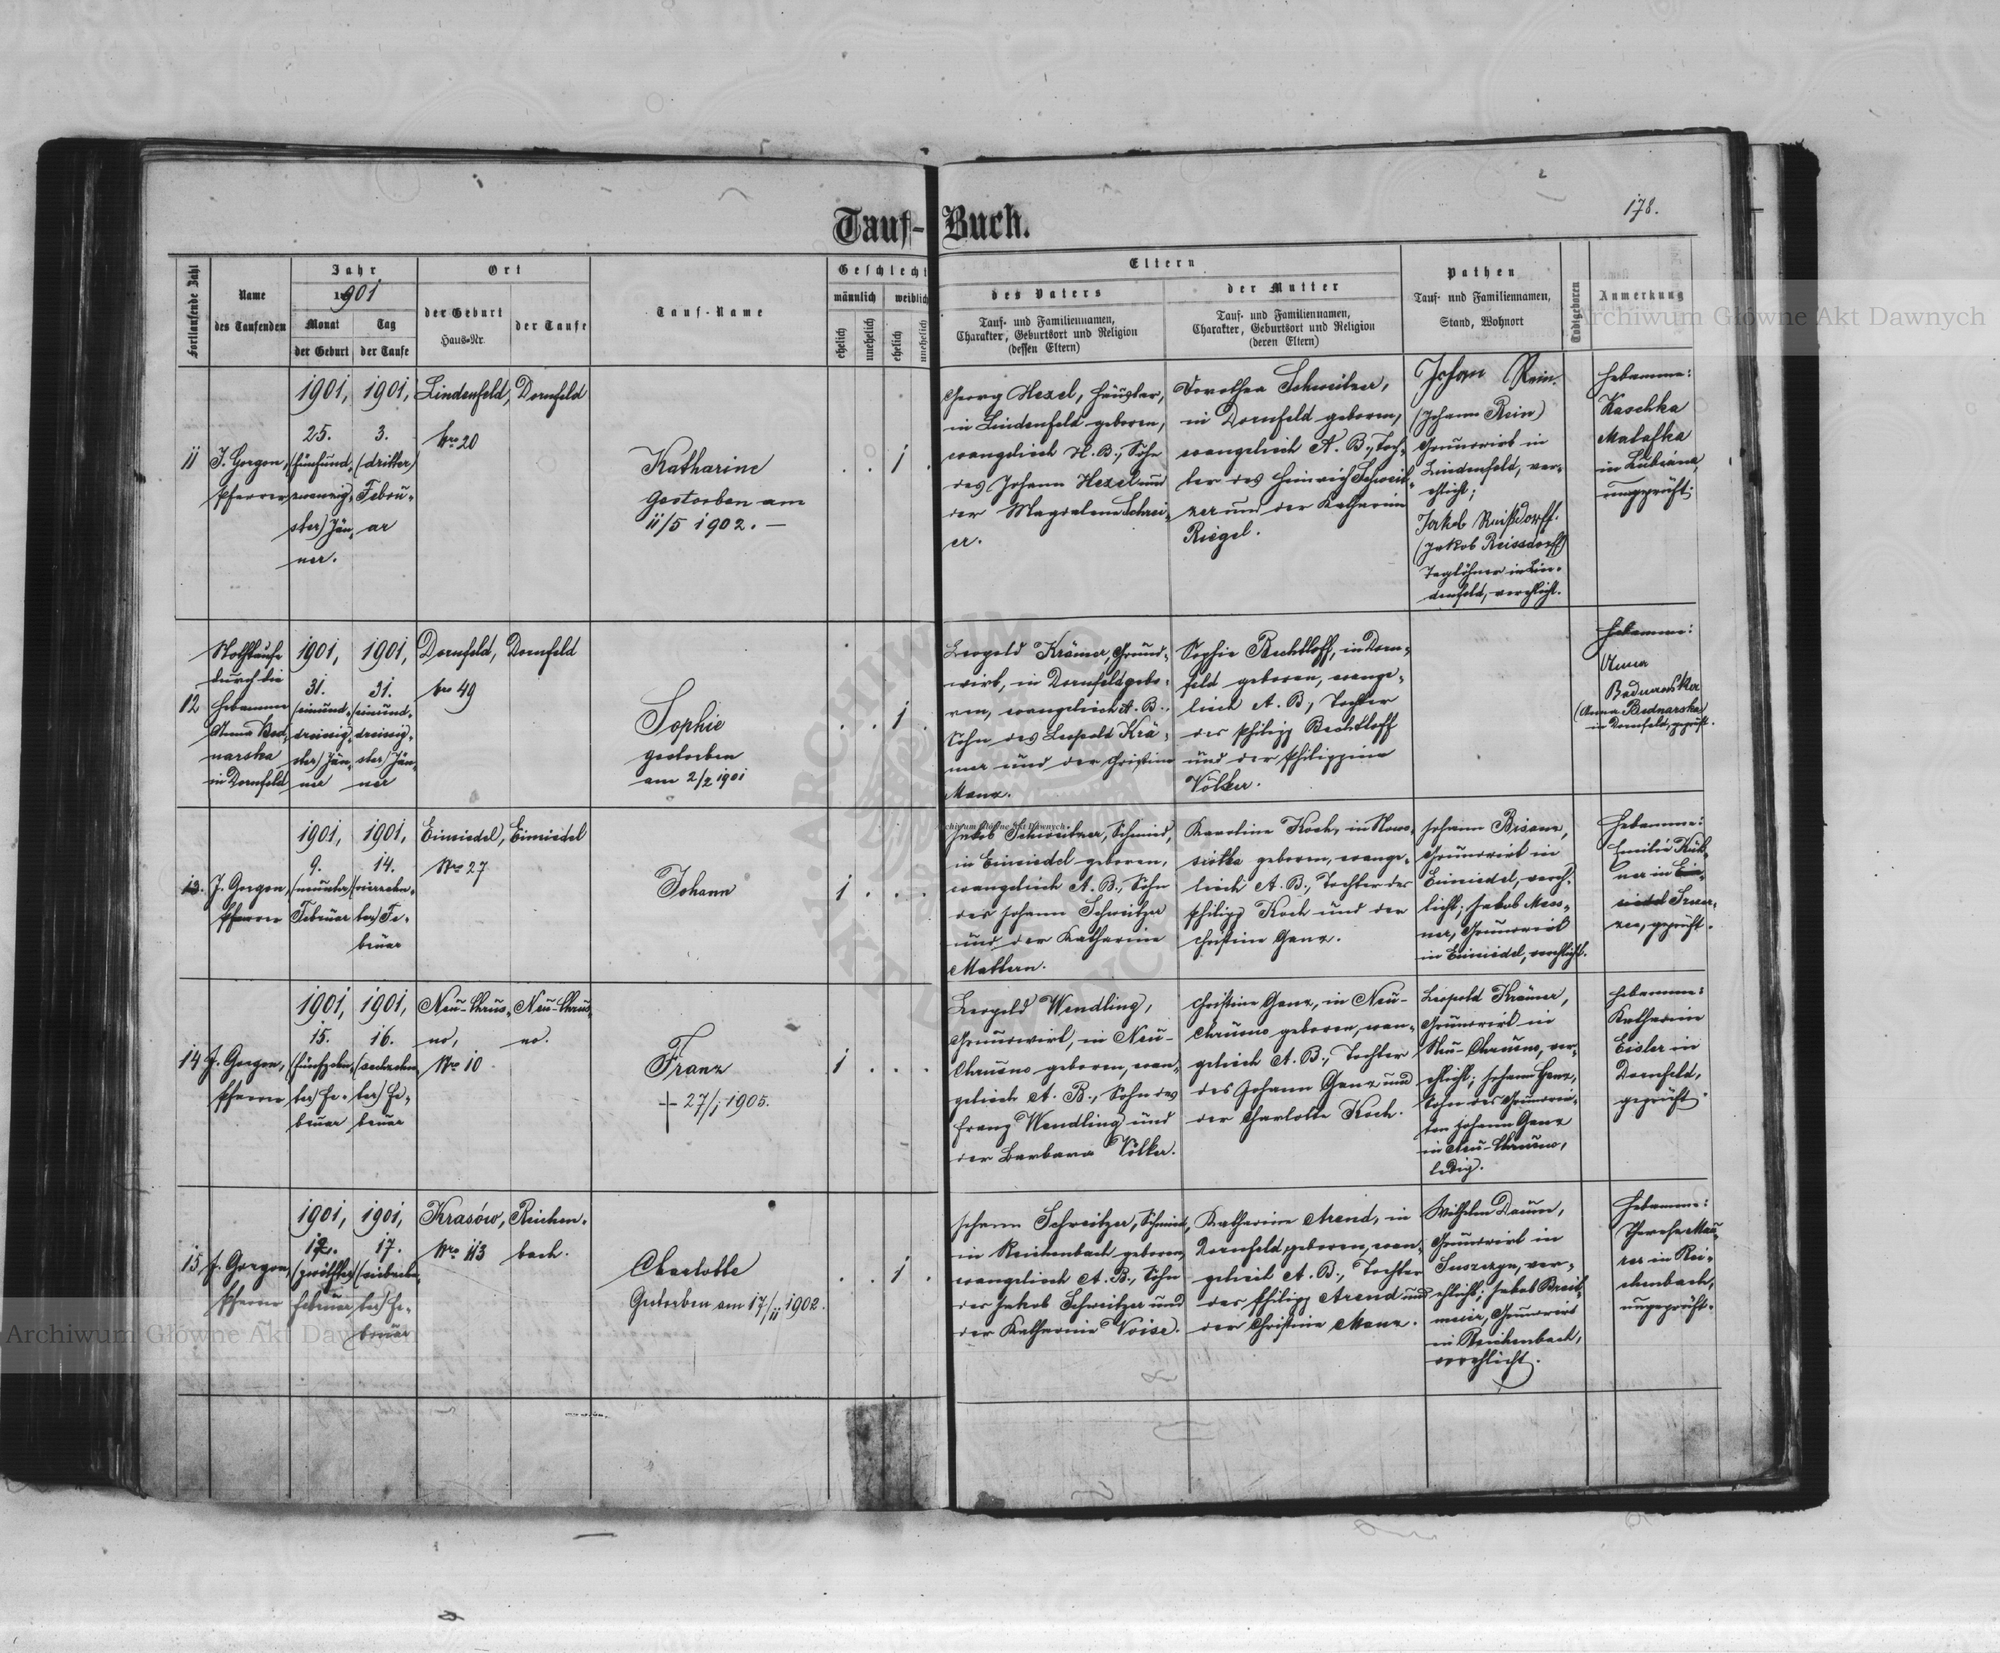 178.
Tauf-Buch.
Fortlaufende Zahl
Name
des Taufenden
Jahr
1901
Monat
der Geburt
Tag
der Taufe
Ort
der Geburt
Haus-Nr.
der Taufe
Tauf-Name
Geschlecht
männlich
weiblich
ehelich
unehelich
ehelich
unehelich
Eltern
des Vaters
Tauf- und Familiennamen,
Charakter, Geburtsort und Religion
(dessen Eltern)
der Mutter
Tauf- und Familiennamen,
Charakter, Geburtsort und Religion
(deren Eltern)
Pathen
Tauf- und Familiennamen,
Stand, Wohnort
Todtgeboren
Anmerkung
11
J. Gorgon,
Pfarrer
1901,
25.
(fünfund-
zwanzig-
ster) Jän-
ner.
1901,
3.
(dritter)
Febru-
ar
Lindenfeld,
Nro 20
Dornfeld
Katharine
Gestorben am
11/5 1902. —
1
Georg Hexel, Häusler,
in Lindenfeld geboren,
evangelisch H. B., Sohn
des Johann Hexel und
der Magdalena Schrei-
er.
Dorothea Schweitzer,
in Dornfeld geboren,
evangelisch A. B., Toch-
ter des Heinrich Schweit-
zer und der Katharine
Riegel.
Johan Rein.
(Johann Rein)
Grundwirt in
Lindenfeld, ver-
ehlicht;
Jakob Reißdorff.
(Jakob Reissdorff)
Taglöhner in Lin-
denfeld, verehlicht.
Hebamme:
Kaschka
Malafka
in Lubiana,
ungeprüft.
12
Nothtaufe
durch die
Hebamme
Anna Bed-
narska
in Dornfeld
1901,
31.
(einund-
dreissig-
ster) Jän-
ner
1901,
31.
(einund-
dreissig-
ster) Jän-
ner
Dornfeld,
Nro 49
Dornfeld
Sophie
gestorben
am 2/2 1901
1
Leopold Krämer, Grund-
wirt, in Dornfeld gebo-
ren, evangelisch A. B.,
Sohn des Leopold Krä-
mer und der Christine
Manz.
Sophie Bechtloff, in Dorn-
feld geboren, evange-
lisch A. B., Tochter
des Philipp Bechtloff
und der Philippine
Völker.
Hebamme:
Anna
Bednarska
(Anna Bednarska)
in Dornfeld, geprüft.
13.
J. Gorgon,
Pfarrer
1901,
9.
(neunter)
Februar
1901,
14.
(vierzehn-
ter) Fe-
bruar
Einsiedel,
Nro 27
Einsiedel
Johann
1
Jakob Schweitzer, Schmied,
in Einsiedel geboren,
evangelisch A. B., Sohn
des Johann Schweitzer
und der Katharine
Mattern.
Karoline Koch, in Nowo-
siolka geboren, evange-
lisch A. B., Tochter des
Philipp Koch und der
Christine Ganz.
Johann Bisanz,
Grundwirt in
Einsiedel, vereh-
licht; Jakob Mess-
ner, Grundwirt
in Einsiedel, verehlicht.
Hebamme:
Emilie Küh-
ner in Ein-
siedel
geprüft.
14
J. Gorgon,
Pfarrer
1901,
15.
(fünfzehn-
ter) Fe-
bruar
1901,
16.
(sechzehn-
ter) Fe-
bruar
Neu-Chrus-
no,
Nro 10
Neu-Chrus-
no.
Franz
† 27/1 1905.
1
Leopold Wendling,
Grundwirt, in Neu-
Chrusno geboren, evan-
gelisch A. B., Sohn des
Franz Wendling und
der Barbara Völker.
Christine Ganz, in Neu-
Chrusno geboren, evan-
gelisch A. B., Tochter
des Johann Ganz und
der Charlotte Koch.
Leopold Krämer,
Grundwirt in
Neu-Chrusno, ver-
ehlicht; Johann Ganz,
Sohn des Grundwir-
ten Johann Ganz
in Neu-Chrusno,
ledig.
Hebamme:
Katharine
Eisler in
Dornfeld,
geprüft.
15
J. Gorgon,
Pfarrer
1901,
12.
(zwölfter)
Februar
1901,
17.
(siebzehn-
ter) Fe-
bruar
Krasów,
Nro 113
Reichen-
bach.
Charlotte
Gestorben am 17/11 1902.
1
Johann Schweitzer, Schmied,
in Reichenbach geboren,
evangelisch A. B., Sohn
des Jakob Schweitzer und
der Katharine Noise.
Katharine Arend, in
Dornfeld geboren, evan-
gelisch A. B., Tochter
des Philipp Arend und
der Christine Manz.
Wilhelm Daum,
Grundwirt in
Suszczyn, ver-
ehlicht; Jakob Breit-
meier, Grundwirt
in Reichenbach,
verehlicht.
Hebamme:
Therese Mau-
rer in Rei-
chenbach,
ungeprüft.
Archiwum Główne Akt Dawnych
Archiwum Główne Akt Dawnych
Archiwum Główne Akt Dawnych